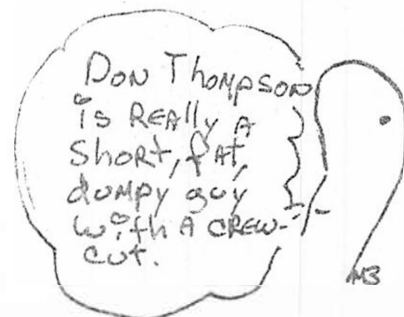 Don Thompson
is REAlly A
Short, fAt,
dumpy guy
with A CREW-
CUT.
M3